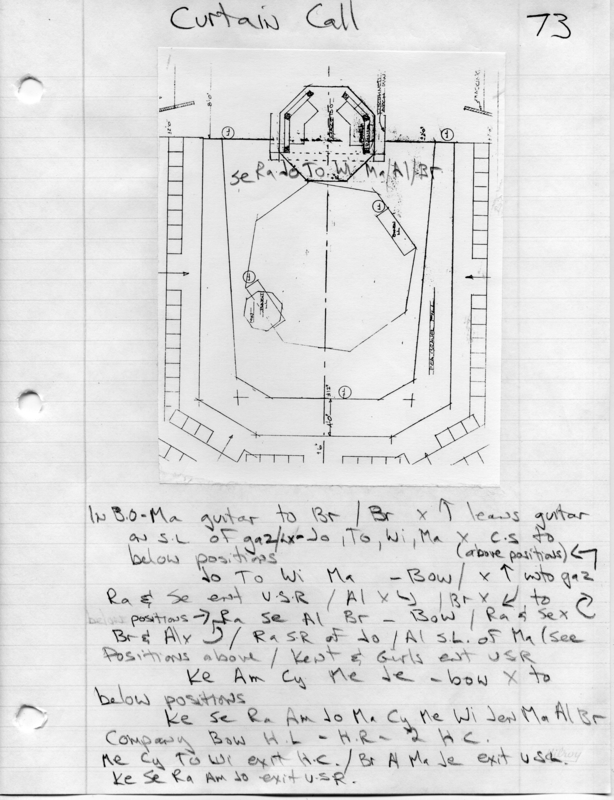 Curtain Call 73
Se Ra Jo To Wi Ma/Al/Br
IN B.O-Ma guitar to Br / Br x ↑ leaves guitar
on S.L of gaz/Lx-Jo, To, Wi, Ma x C.S to
below positions (above positions)
Jo To Wi Ma - Bow / x ↑ into gaz
Ra & Se ent U.S.R / Al x / Br x to
below positions → Ra Se Al Br - Bow / Ra & Se x
Br & Al x / Ra SR of Jo / Al S.L. of Ma (see
Positions above / Kent & Girls ent USR
Ke Am Cy Me Je - bow x to
below positions
Ke Se Ra Am Jo Ma Cy Me Wi Jen Ma Al Br
Company Bow H.L - H.R - 2 H.C.
Me Cy To Wi exit H.C. / Br Al Ma Je exit U.S.L.
Ke Se Ra Am Jo exit U.S.R.